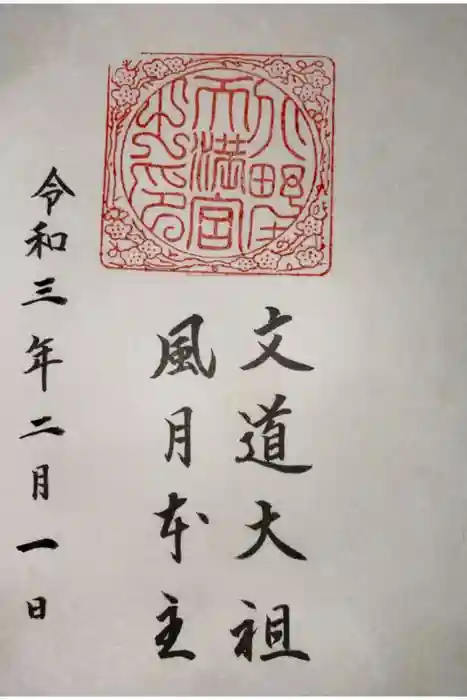 天満宮
文道大祖
風月本主
令和三年二月一日